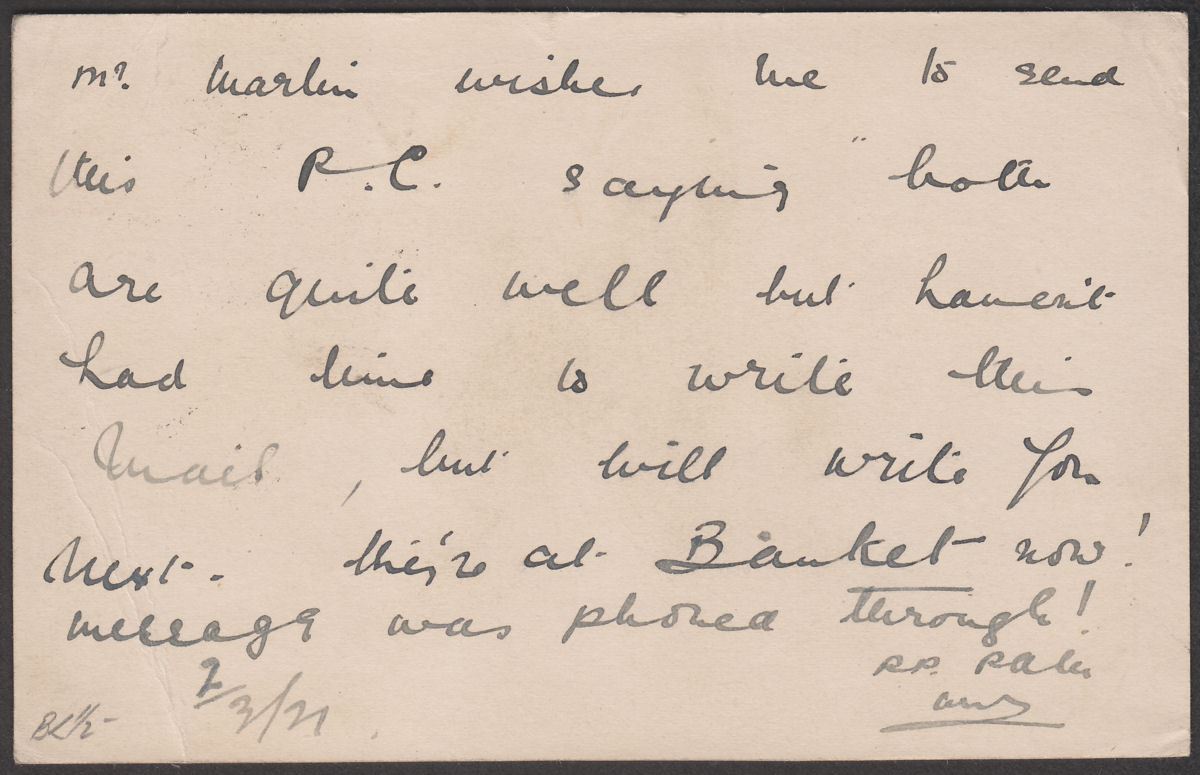 Mr. Martin wishes me to send
this P.C. saying "both
are quite well but haven't
had time to write this
Mail, but will write you
next. they're at Banket now!
message was phoned through!
p.p.
7/3/31